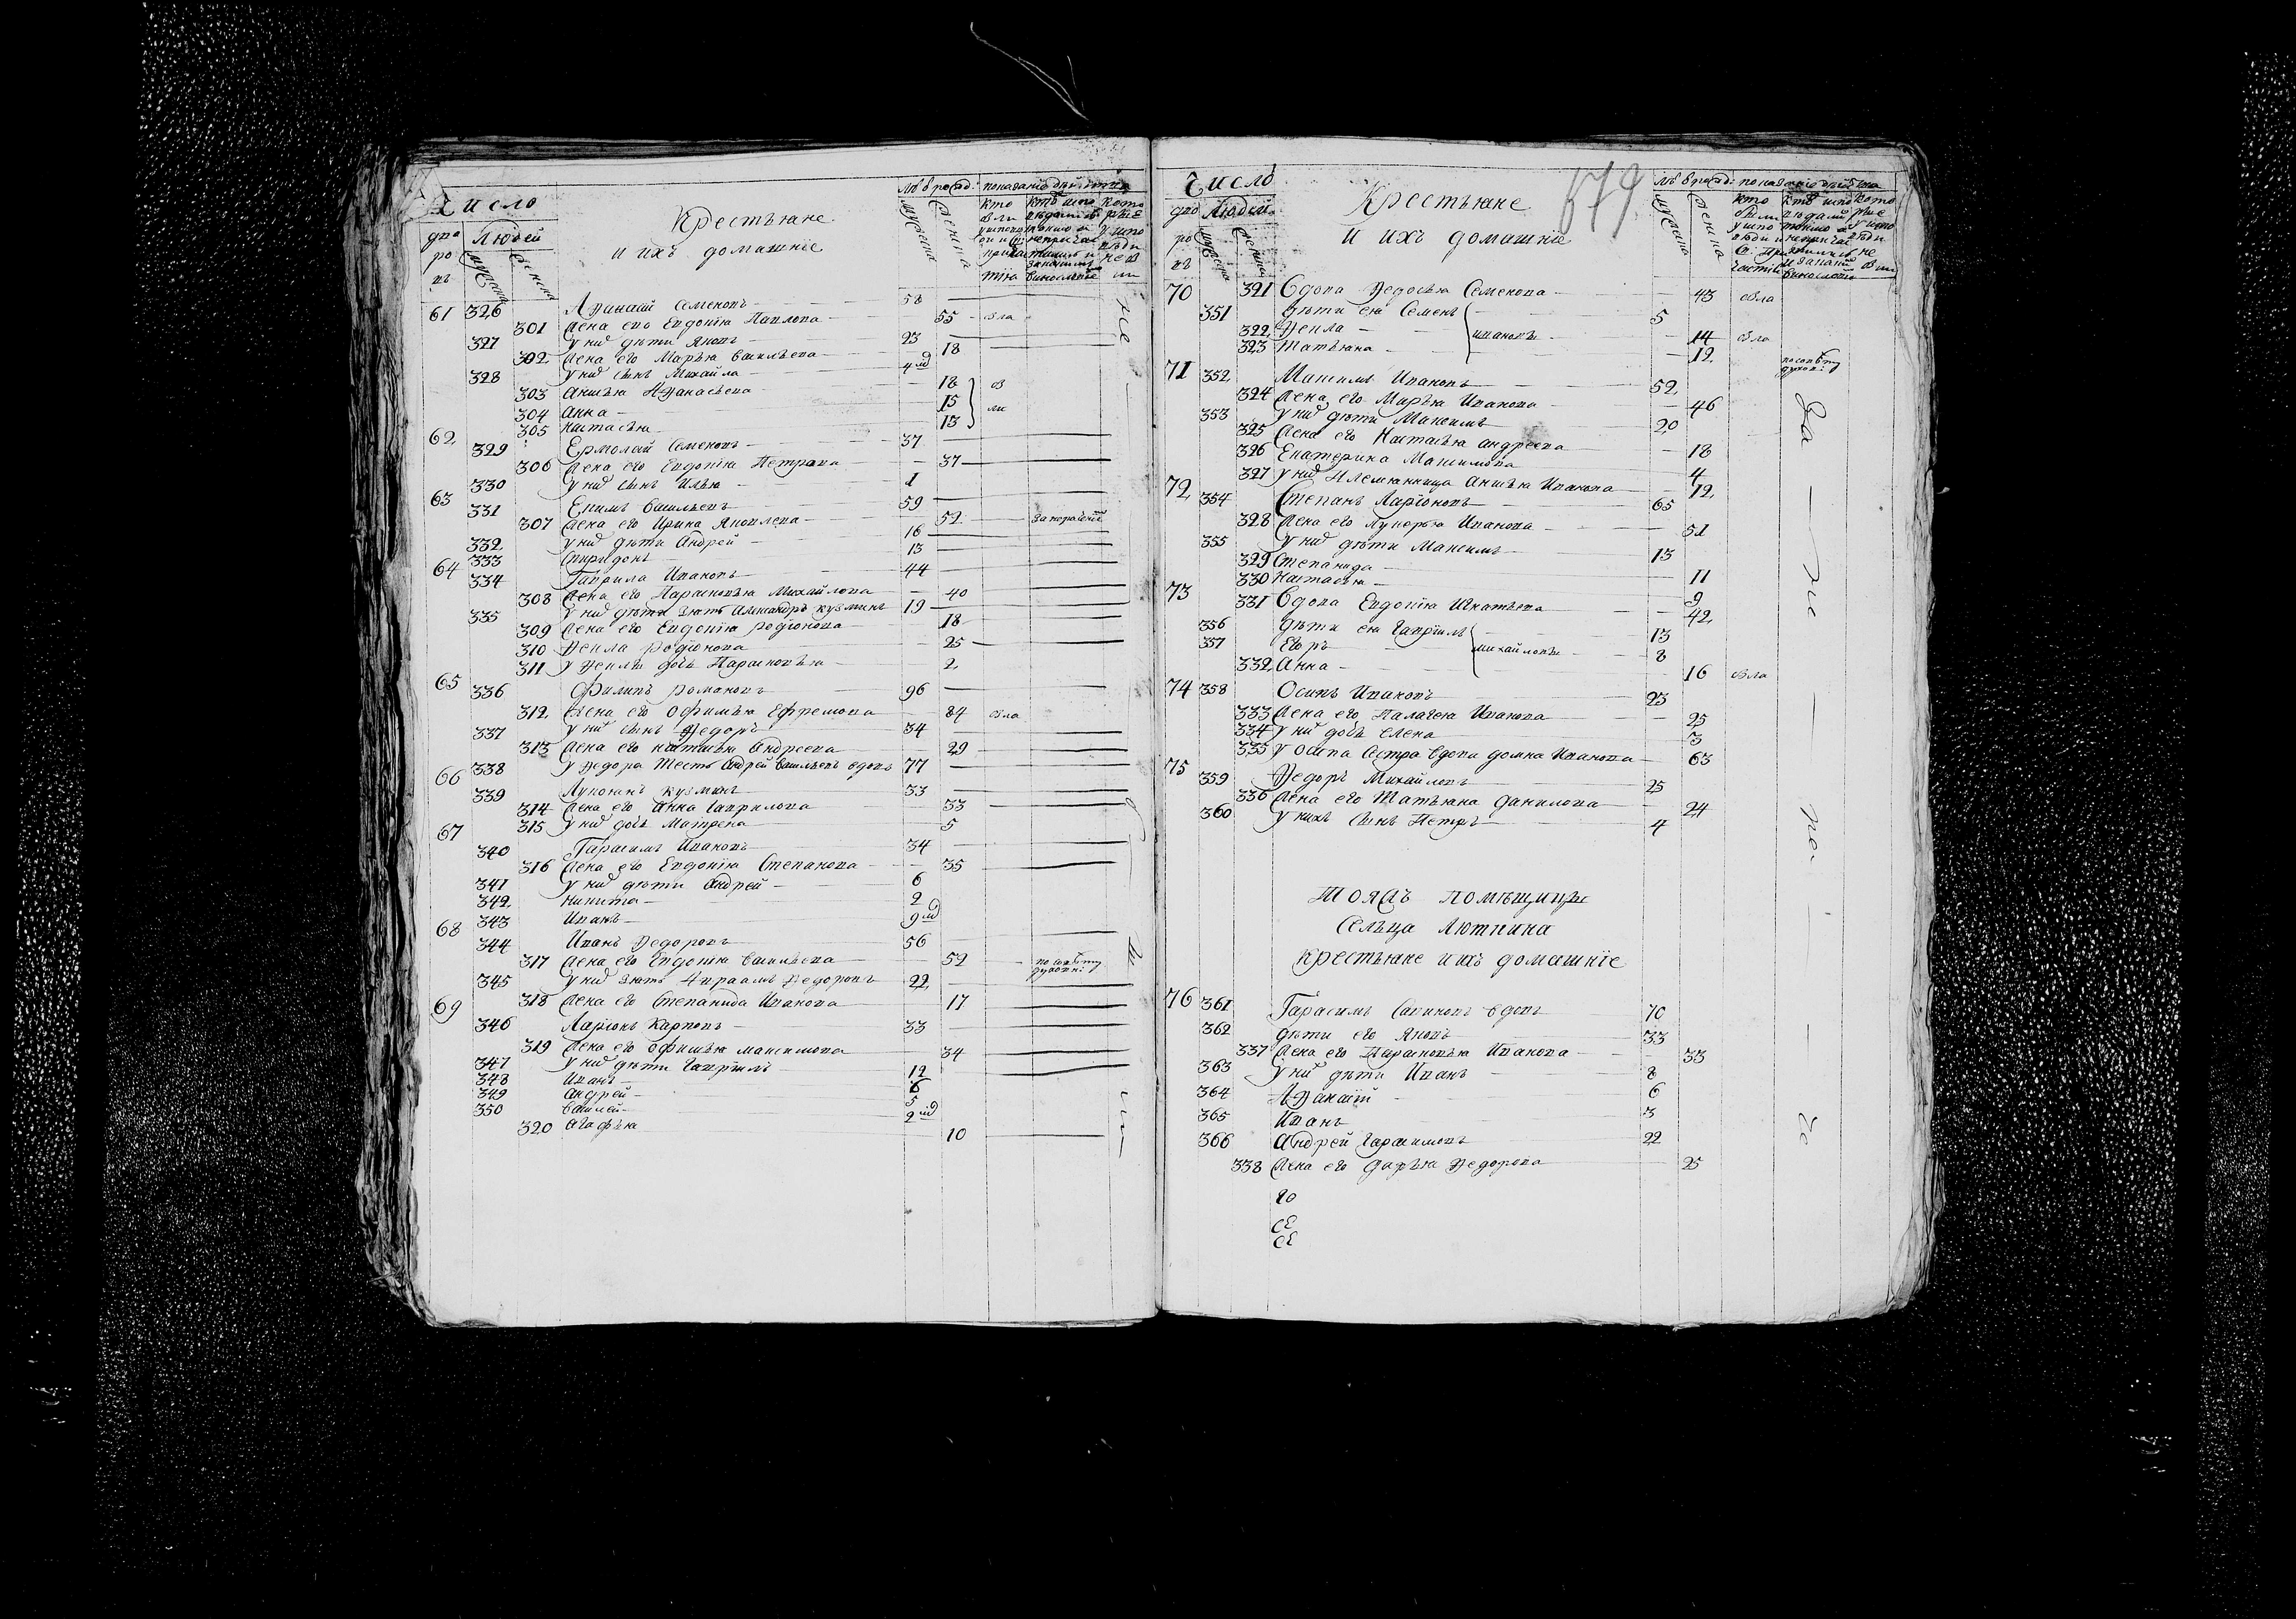 Число
Крестьяне
и ихъ домашнїе
дво
ро
въ
людей
мужеска
женска
61 326 Афанасїй Семеновъ 58
301 Жена его Евдокїя Павлова 55 была
327 у них дѣти Яковъ 23
302 жена его Марья Васильева 18
328 у них сынъ Михайла 4 нд
303 Анисья Афанасьева 18 бы
304 Анна 15 ли
305 Настасья 13
62 329 Ермолай Семеновъ 37
306 жена его Евдокїя Петрова 37
330 у них сынъ Илья 1
63 331 Екимъ Васильевъ 59
307 жена его Ирина Яковлева 52
332 у них дѣти Андрей 16
333 Спиридонъ 13
64 334 Гаврила Ивановъ 44
308 жена его Парасковья Михайлова 40
335 у них дѣти зять Александръ Кузминъ 19
309 жена его Евдокїя Родїонова 18
310 Фекла Родїонова 25
311 у Феклы дочь Парасковья 2
65 336 Филипъ Романовъ 96
312 жена его Офимья Ефремова 84 была
337 у них сынъ Федоръ 34
313 жена его Настасья Андреева 29
338 у Федора тесть Андрей Васильевъ вдовъ 77
66 339 Лукоянъ Кузминъ 33
314 жена его Анна Гаврилова 33
315 у них дочь Матрена 5
67 340 Гарасимъ Ивановъ 34
316 жена его Евдокїя Степанова 35
341 у них дѣти Андрей 6
342 Никита 2
343 Иванъ 9 нд
68 344 Иванъ Федоровъ 56
317 жена его Евдокїя Васильева 52 по совѣту духовн:
345 у них зять Авраамъ Федоровъ 22
318 жена его Степанида Иванова 17
69 346 Ларїонъ Карповъ 33
319 жена его Офимья Максимова 34
347 у них дѣти Гаврїилъ 12
348 Иванъ 6
349 Андрей 5
350 Василей 2 нд
320 Агафья 10
Число
Крестьяне
и ихъ домашнїе
дво
ро
въ
людей
мужеска
женска
70 321 Вдова Федосья Семенова 43 была
351 дѣти ея Семенъ 5
322 Фекла Ивановы 14 была
323 Татьяна 12
71 352 Максимъ Ивановъ 52 по совѣту духов:
324 жена его Марья Иванова 46
353 у них дѣти Максимъ 20
325 жена его Настасья Андреева 18
326 Екатерина Максимова 4
327 у них племянница Анисья Иванова 12
72 354 Степанъ Ларїоновъ 65
328 жена его Лукерья Иванова 51
355 у них дѣти Максимъ 13
329 Степанида 11
330 Настасья 9
73 331 Вдова Евдокїя Игнатьева 42
356 дѣти ея Гаврїилъ 13
357 Егоръ Михайловы 8
332 Анна 16 была
74 358 Осипъ Ивановъ 23
333 жена его Палагея Иванова 25
334 у них дочь Елена 3
335 у Осипа сестра вдова Домна Иванова 63
75 359 Федоръ Михайловъ 25
336 жена его Татьяна Данилова 24
360 у нихъ сынъ Петръ 4
Тояжъ помѣщицы
сельца Лютнина
крестьяне и ихъ домашнїе
76 361 Гарасимъ Савиновъ вдовъ 70
362 дѣти его Яковъ 33
337 жена его Парасковья Иванова 33
363 у них дѣти Иванъ 8
364 Афанасїй 6
365 Иванъ 3
366 Андрей Гарасимовъ 22
338 жена его Дарья Федорова 25